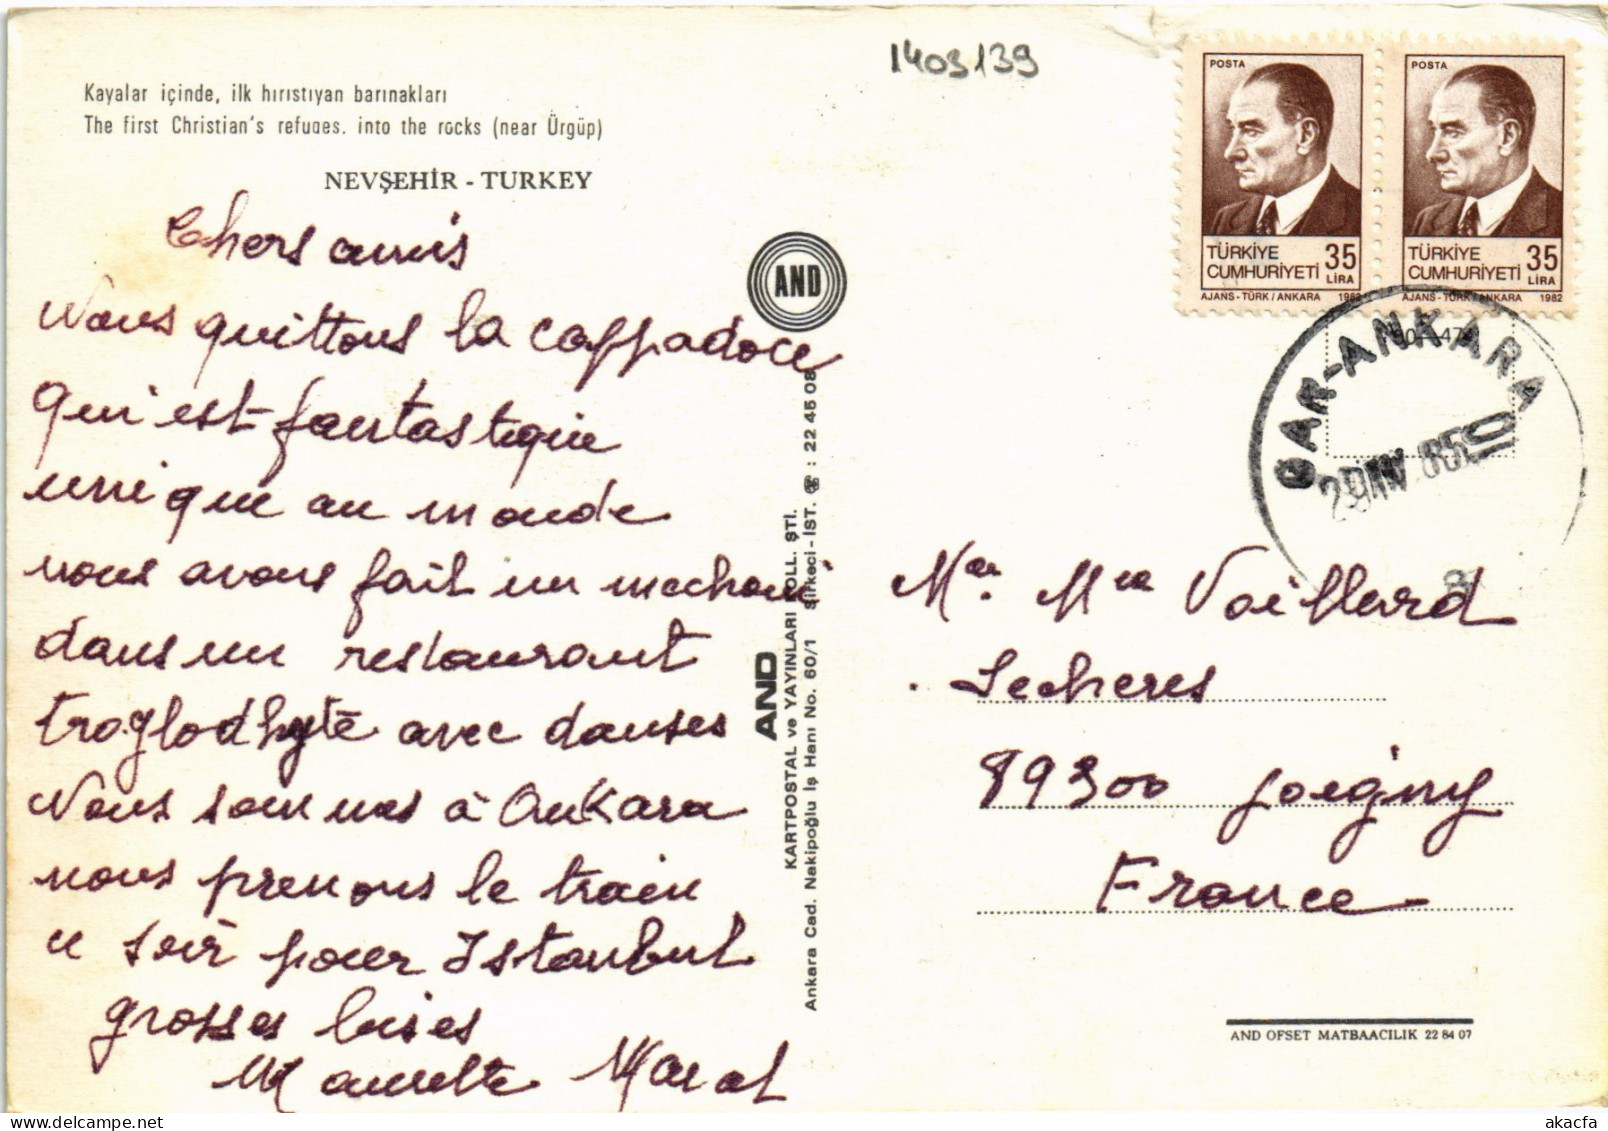 1403139
Kayalar içinde, ilk hıristıyan barınakları
The first Christian's refuges. into the rocks (near Ürgüp)
NEVŞEHİR - TURKEY
Chers amis
Nous quittons la cappadoce
qui est fantastique
unique au monde
nous avons fait un mechoui
dans un restaurant
troglodhyte avec danses
Nous sommes à Ankara
nous prenons le train
ce soir pour Istanbul
grosses bises
AND
AND
KARTPOSTAL ve YAYINLARI KOLL. ŞTİ.
Ankara Cad. Nakipoğlu İş Hanı No. 60/1 Sirkeci - İST. : 22 45 08
POSTA
TÜRKİYE
CUMHURİYETİ
35
LİRA
AJANS - TÜRK / ANKARA 1982
POSTA
TÜRKİYE
CUMHURİYETİ
35
LİRA
AJANS - TÜRK / ANKARA 1982
GAR-ANKARA
Mer. Mme Vaillard
Secheres
89300 Joigny
France
AND OFSET MATBAACILIK 22 84 07
akacfa